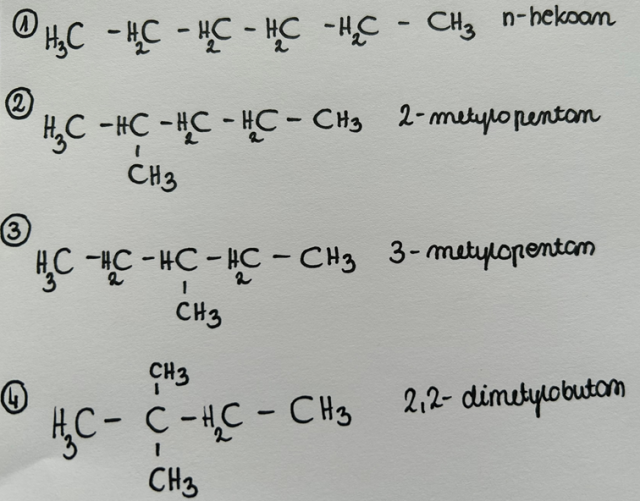 ① H₃C - H₂C - H₂C - H₂C - H₂C - CH₃ n-heksan
② H₃C - HC - H₂C - H₂C - CH₃ 2-metylopentan
CH₃
③ H₃C - H₂C - HC - H₂C - CH₃ 3-metylopentan
CH₃
CH₃
④ H₃C - C - H₂C - CH₃ 2,2-dimetylobutan
CH₃